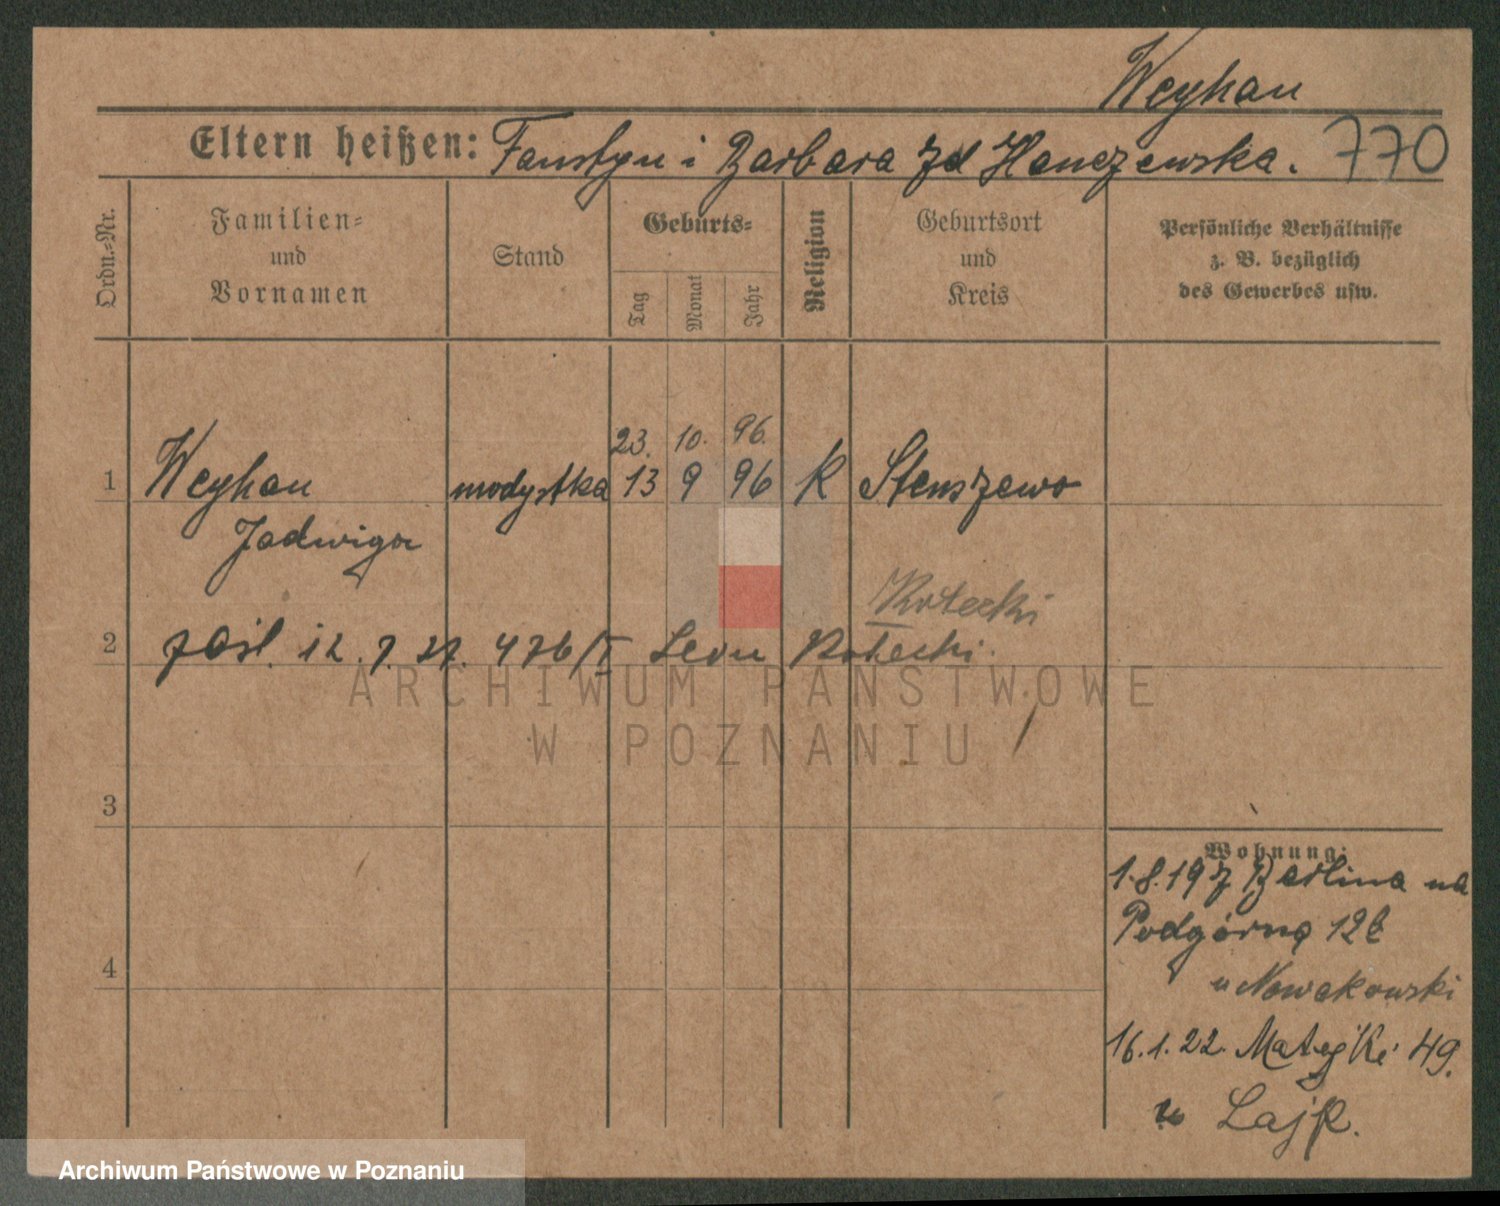 Weyhan
Eltern heißen: Faustyn i Barbara zd Hanczewska.
770
Ordn.-Nr.
Familien- und Vornamen
Stand
Geburts-
Tag
Monat
Jahr
Religion
Geburtsort und Kreis
Persönliche Verhältnisse
z. B. bezüglich
des Gewerbes usw.
23. 10. 96.
1 Weyhan modystka 13 9 96 K Stenszewo
Jadwiga
Kotecki
2 zaśl. 12.7.27. 476/I Leon Kotecki.
3
4
Wohnung:
1.8.19 z Berlina na
Podgórną 12b
u Nowakowski
16.1.22. Matejki 49.
u Lajk.
ARCHIWUM PAŃSTWOWE
W POZNANIU
Archiwum Państwowe w Poznaniu